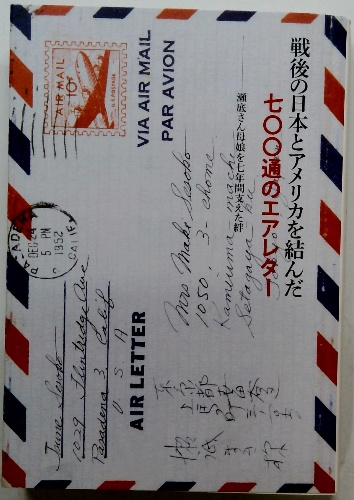 戦後の日本とアメリカを結んだ
七〇〇通のエアレター
瀬底さん母娘を七年間支えた絆
AIR MAIL
10¢
U.S. POSTAGE
VIA AIR MAIL
PAR AVION
PASADENA
DEC 24
5 PM
1952
CALIF.
Mrs Maka Sesoko
1050, 3-chome
Kamiuma-machi
Setagaya-ku
東京都世田谷区
June Sesoko
1029 Flintridge Ave
Pasadena 3, Calif
U S A
AIR LETTER